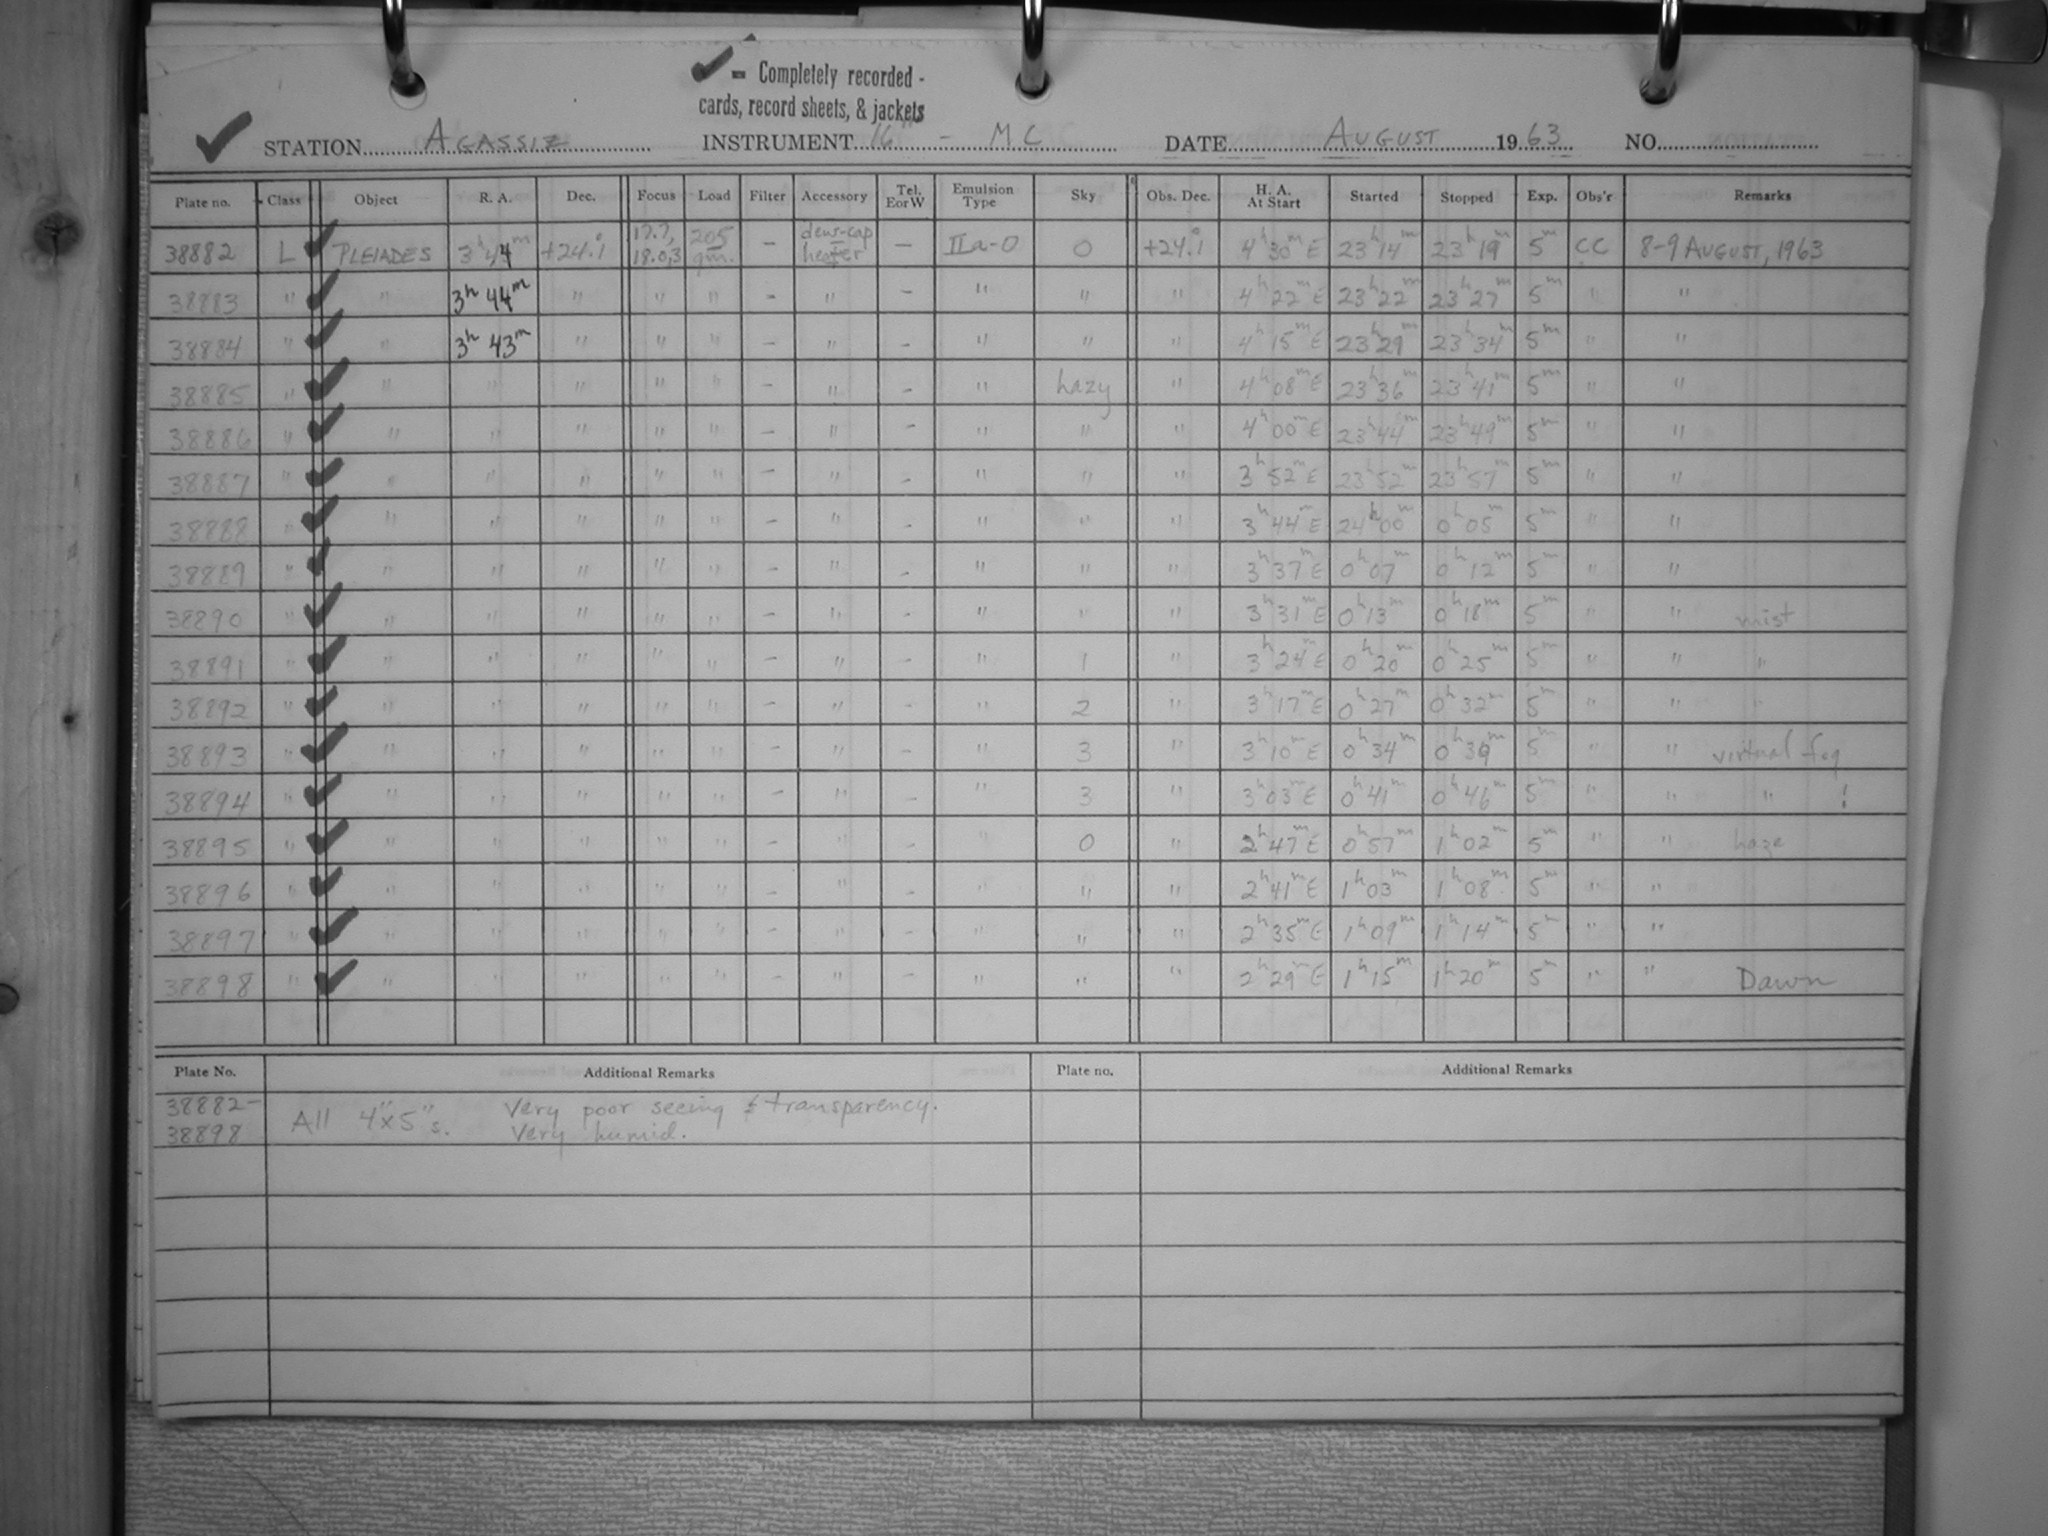 ✓ = Completely recorded -
cards, record sheets, & jackets
✓ STATION AGASSIZ INSTRUMENT 16" - MC DATE AUGUST 1963 NO.
Plate no. Class Object R. A. Dec. Focus Load Filter Accessory Tel. E or W Emulsion Type Sky Obs. Dec. H. A. At Start Started Stopped Exp. Obs'r Remarks
38882 L ✓ PLEIADES 3h 44m +24.°1 17.7, 18.0,3 205 gm. — dew-cap heater — IIa-O 0 +24.°1 4h 30m E 23h 14m 23h 19m 5m CC 8-9 AUGUST, 1963
38883 " ✓ " 3h 44m " " " - " - " " " 4h 22m E 23h 22m 23h 27m 5m " "
38884 " ✓ " 3h 43m " " " - " - " " " 4h 15m E 23h 29m 23h 34m 5m " "
38885 " ✓ " " " " " - " - " hazy " 4h 08m E 23h 36m 23h 41m 5m " "
38886 " ✓ " " " " " - " - " " " 4h 00m E 23h 44m 23h 49m 5m " "
38887 " ✓ " " " " " - " - " " " 3h 52m E 23h 52m 23h 57m 5m " "
38888 " ✓ " " " " " - " - " " " 3h 44m E 24h 00m 0h 05m 5m " "
38889 " ✓ " " " " " - " - " " " 3h 37m E 0h 07m 0h 12m 5m " "
38890 " ✓ " " " " " - " - " " " 3h 31m E 0h 13m 0h 18m 5m " " mist
38891 " ✓ " " " " " - " - " 1 " 3h 24m E 0h 20m 0h 25m 5m " " "
38892 " ✓ " " " " " - " - " 2 " 3h 17m E 0h 27m 0h 32m 5m " " "
38893 " ✓ " " " " " - " - " 3 " 3h 10m E 0h 34m 0h 39m 5m " " virtual fog
38894 " ✓ " " " " " - " - " 3 " 3h 03m E 0h 41m 0h 46m 5m " " " !
38895 " ✓ " " " " " - " - " 0 " 2h 47m E 0h 57m 1h 02m 5m " " haze
38896 " ✓ " " " " " - " - " " " 2h 41m E 1h 03m 1h 08m 5m " "
38897 " ✓ " " " " " - " - " " " 2h 35m E 1h 09m 1h 14m 5m " "
38898 " ✓ " " " " " - " - " " " 2h 29m E 1h 15m 1h 20m 5m " " Dawn
Plate No. Additional Remarks Plate no. Additional Remarks
38882- All 4"x5"s. Very poor seeing & transparency.
38898 Very humid.